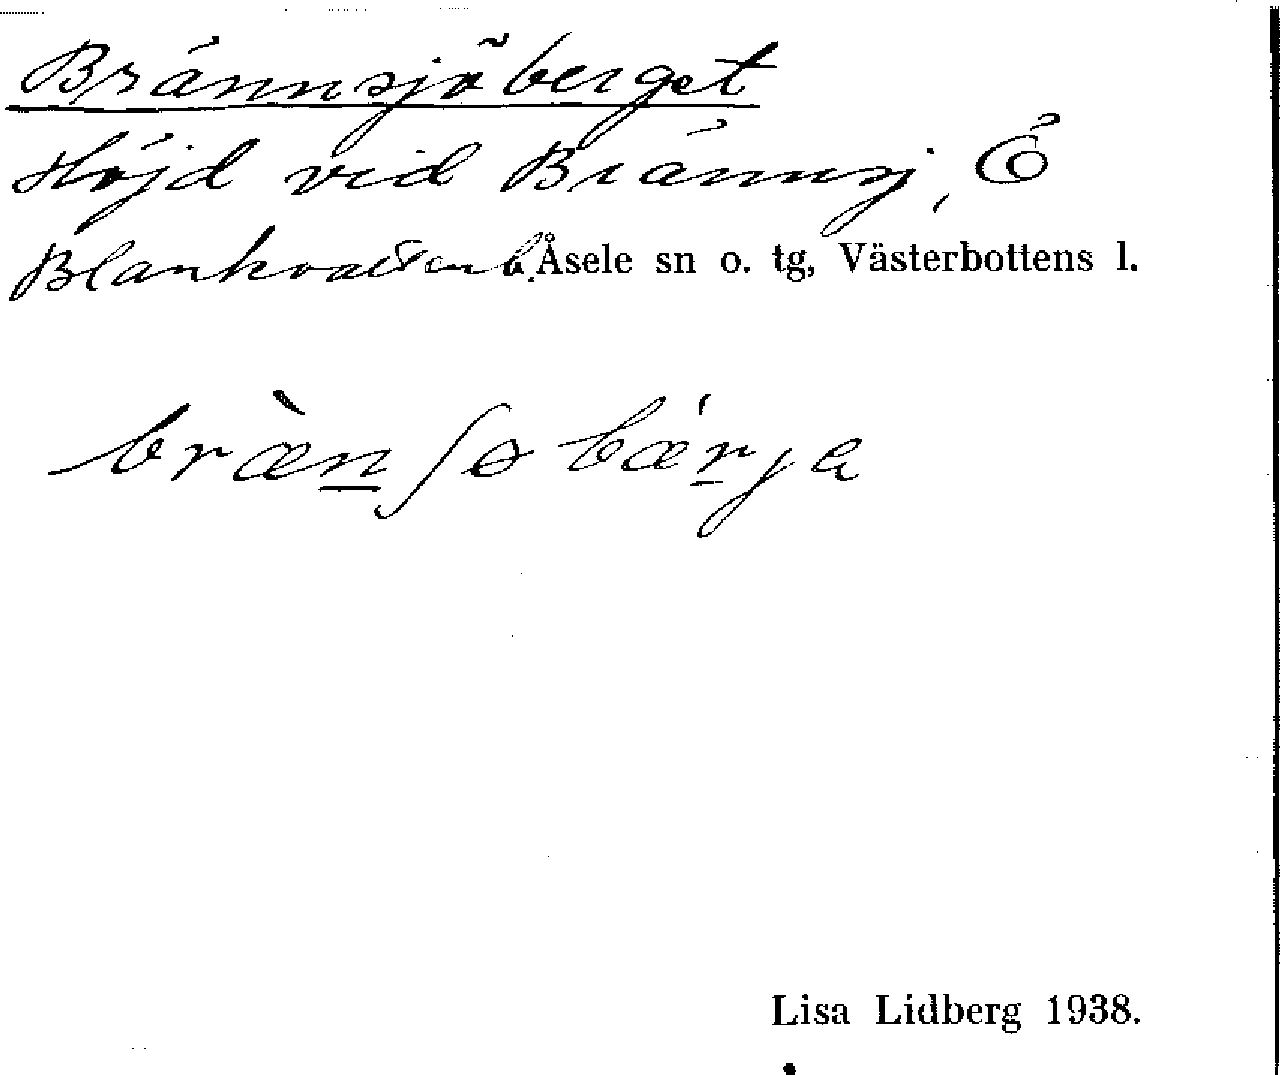 Brännsjöberget
Höjd vid Brännsj, Ö
Blankvattenb. Åsele sn o. tg, Västerbottens l.
bræ̀nʃø bǽrja
Lisa Lidberg 1938.